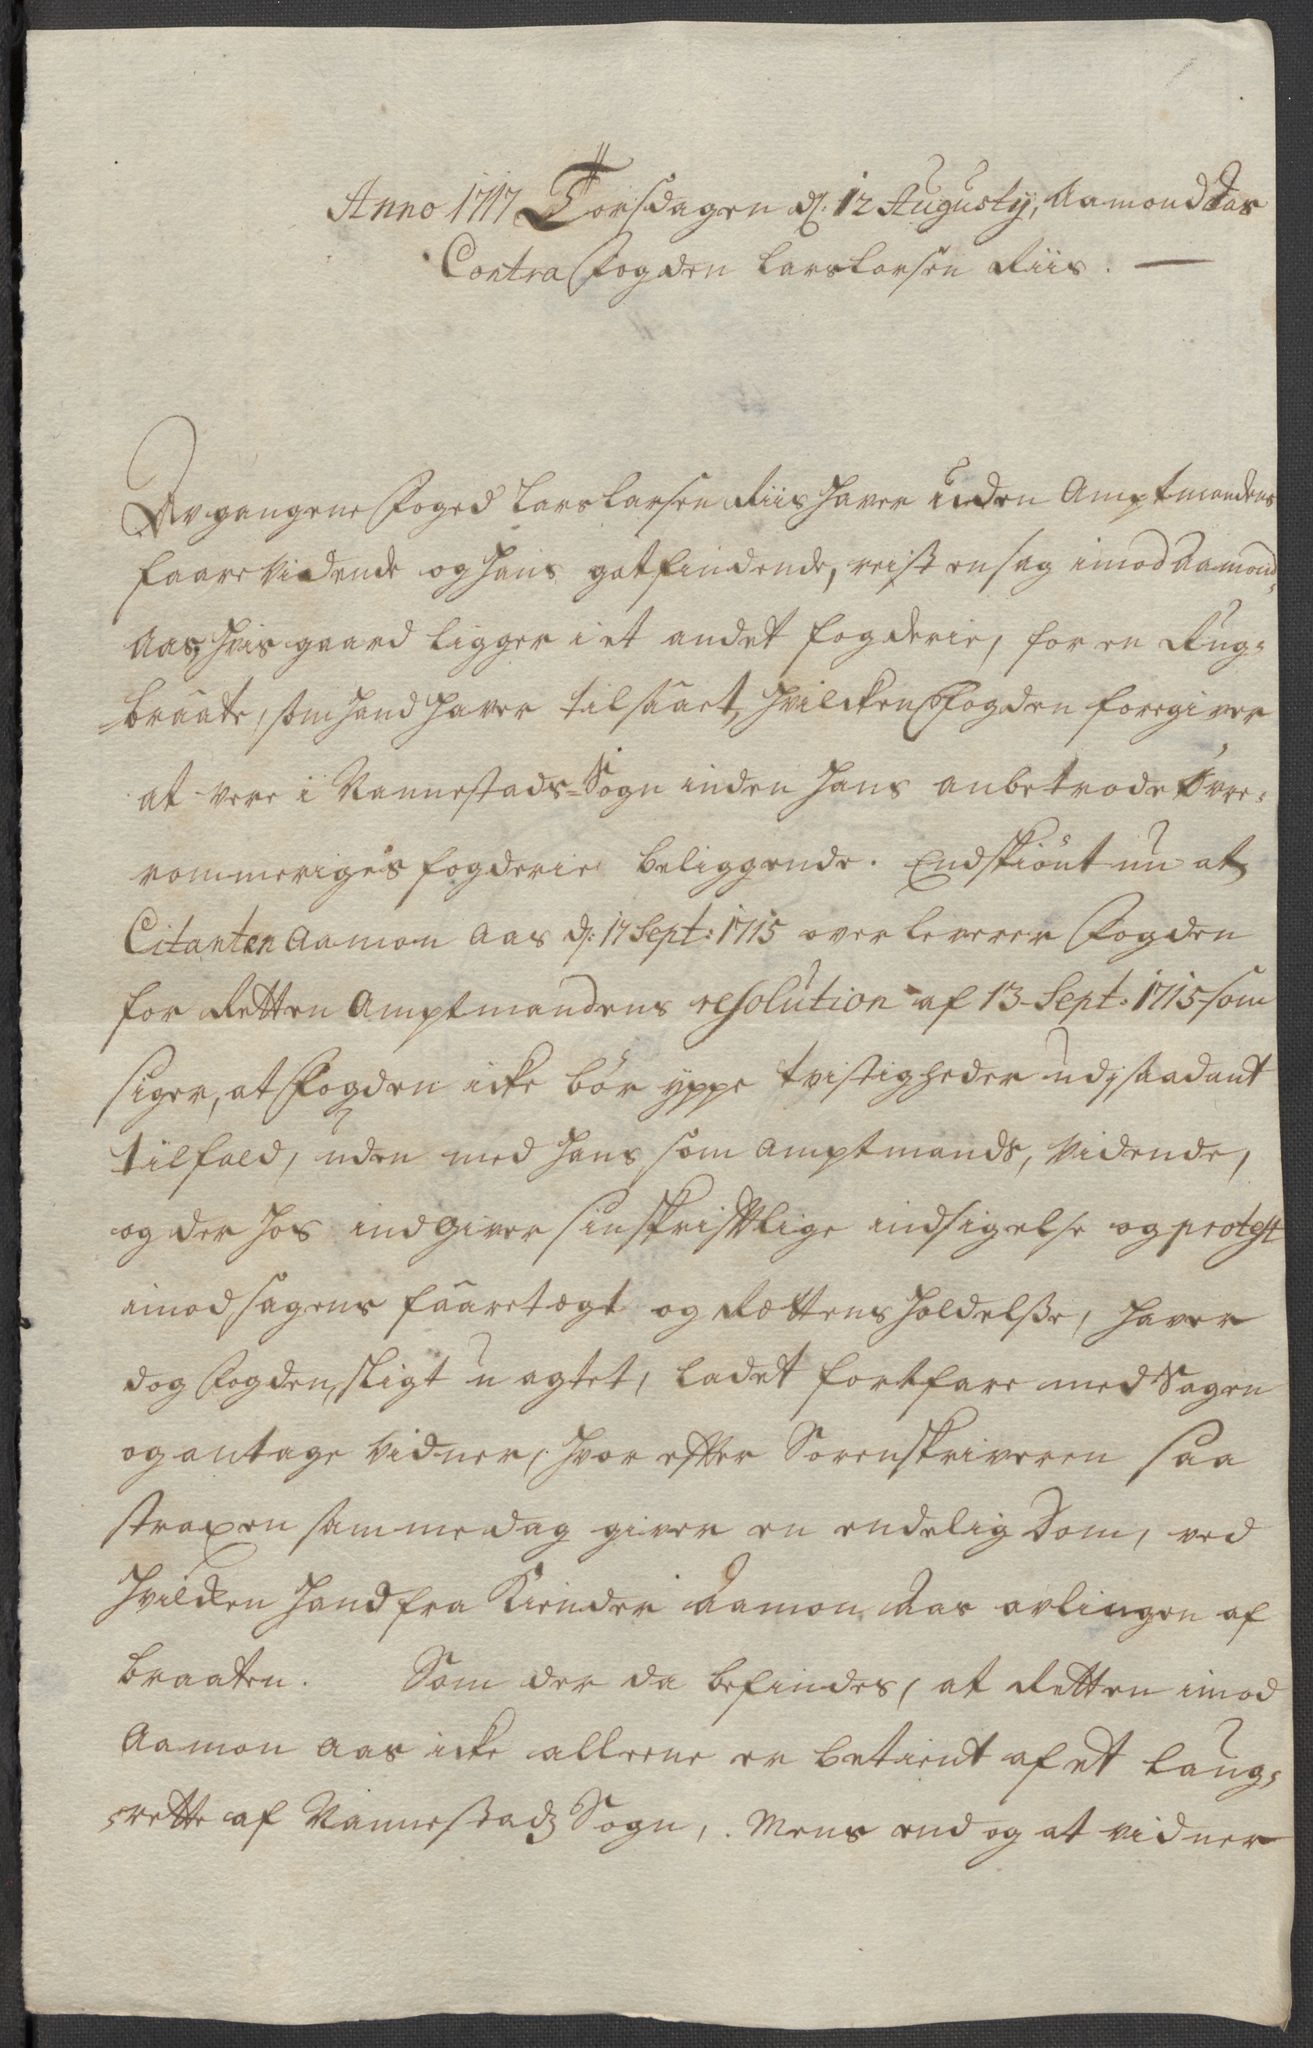 Anno 1717 Torsdagen d. 12 Augusty, Aamond Aas
Contra Fogden Lars Larsen Riis. —
Avgangene Foged Lars Larsen Riis haver uden Amptmandens
faare Vidende og hans gotfindende, reist en sag imod Aamond
Aas, hvis gaard ligger i et andet fogderie, for en Rug-
braate, som hand haver tilsaaet, hvilcken Fogden foregiver
at vere i Nannestads-Sogn inden hans anbetrode Øvre-
rommeriges fogderie beliggende. Endskiønt nu at
Citanten Aamon Aas d: 17 Sept: 1715 overleverer Fogden
for Retten Amptmandens resolution af 13 Sept: 1715 som
siger, at Fogden icke bør yppe tvistigheder udj saadant
tilfald, uden med hans som Amptmands, Vidende,
og der hos indgiver sin skrifttlige indsigelse og protest
imod sagens faaretægt og Rættens holdelsse, haver
dog Fogden, sligt uagtet, ladet fortfare med Sagen
og antage Vidner, hvor effter Sorenskriveren saa
straxen samme dag giver en endelig Dom, ved
hvilcken hand fra Kiender Aamon Aas avlingen af
braaten. Som der da befindes, at Retten imod
Aamon Aas icke alleene er betient af et laug-
rette af Nannestadz Sogn, Mens end og at vidner